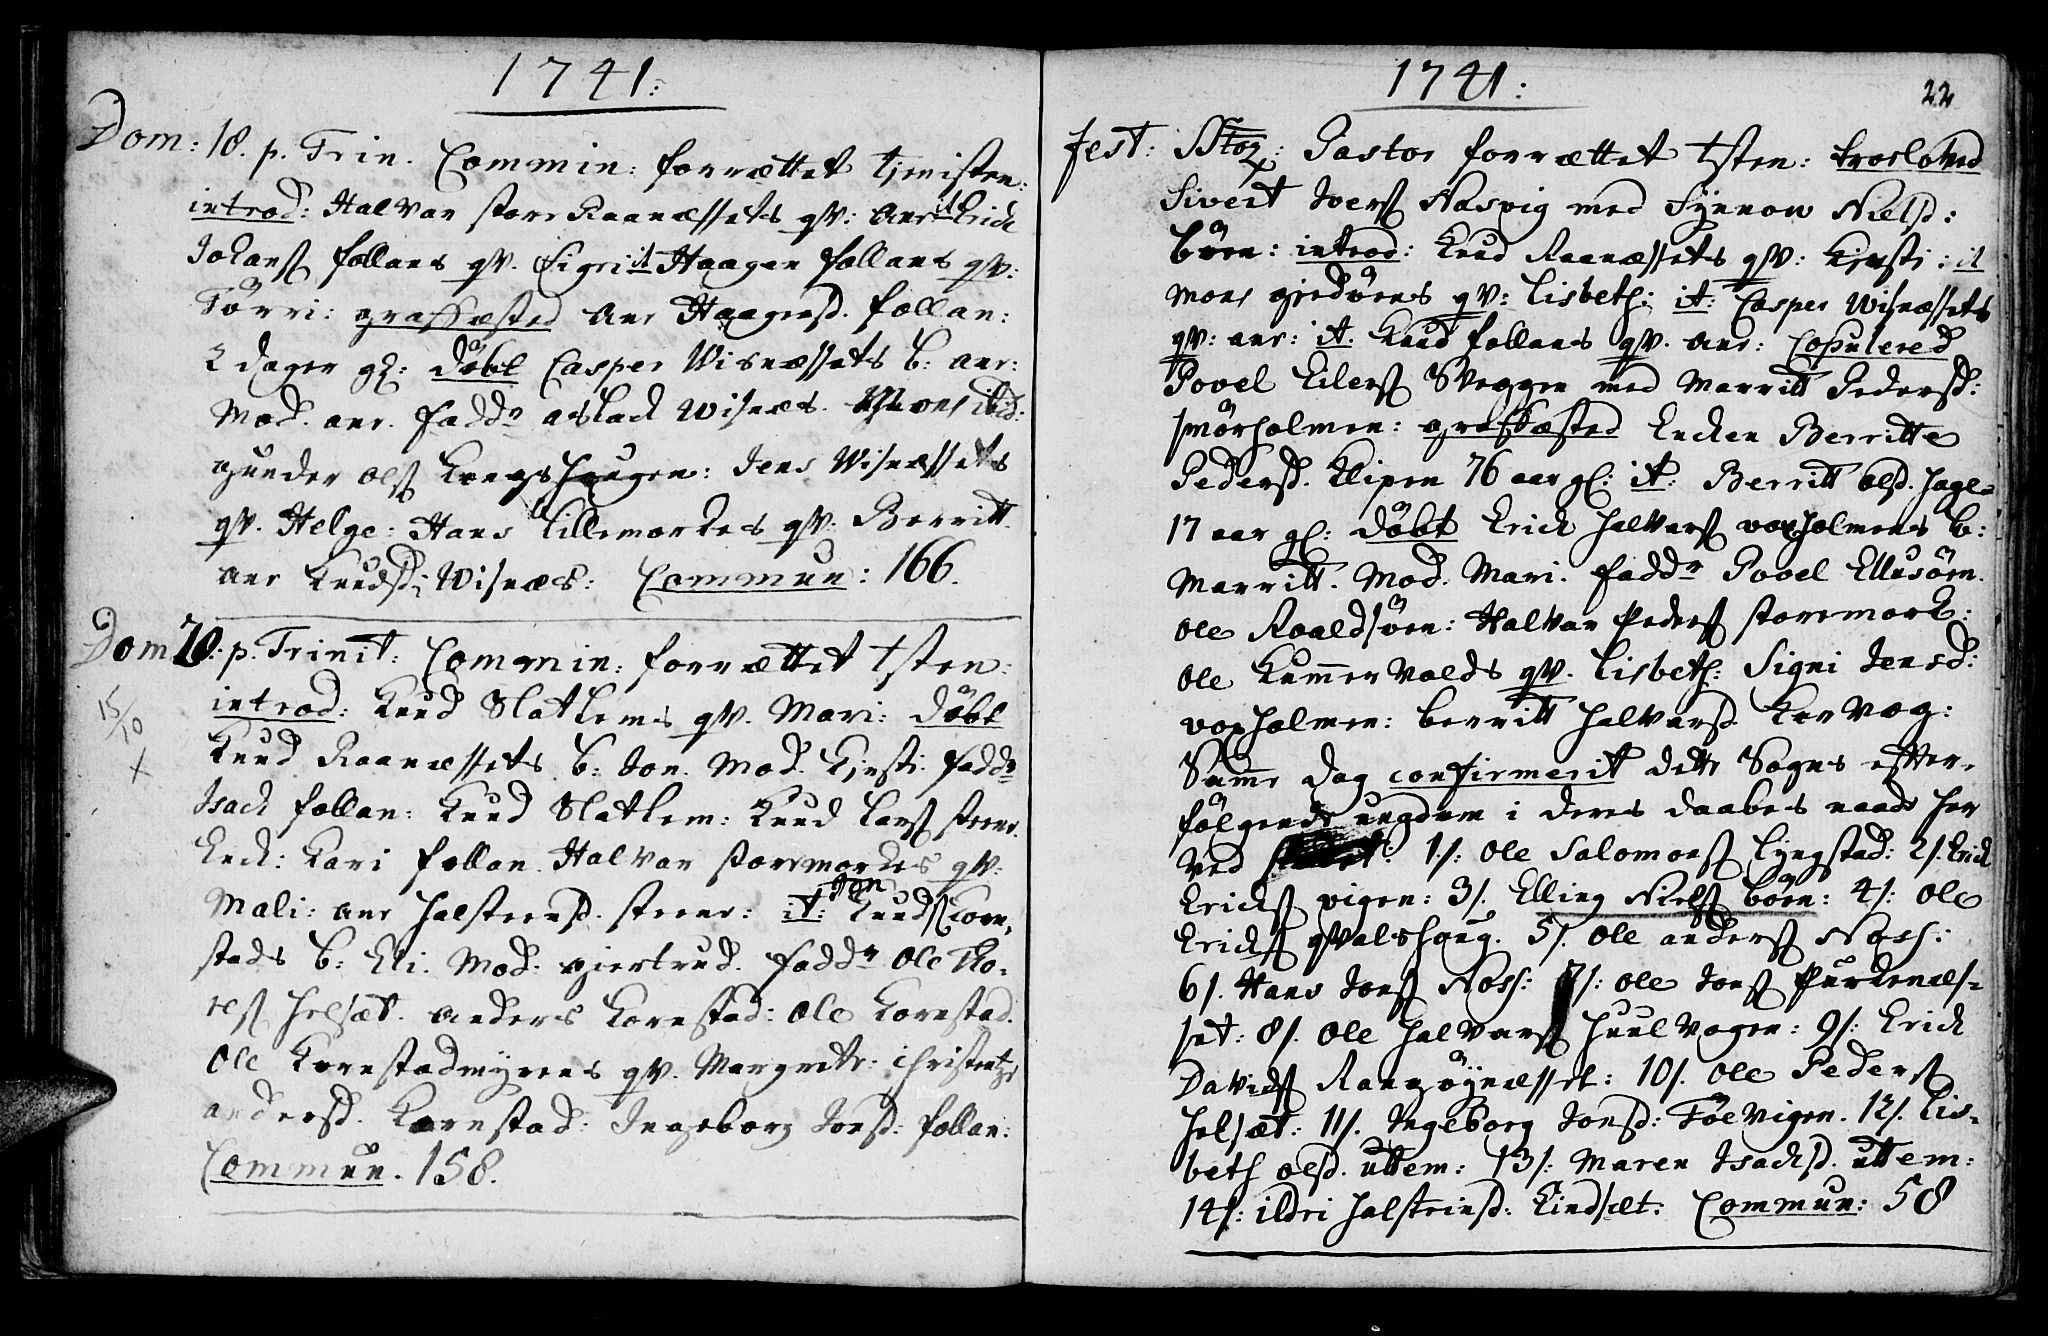 1741:
Dom: 18. p. Trin. Commin: forrættet tjenisten:
introd: Halvar store Raanæssets qv: Anr: it Erich
Johans: follans qv. Sigri it Haagen follans qv:
Torri: graffæsted Anr Haagensd. follan:
2 dager gl: döbt Casper Wisnæssets b: anr:
Mod. anr. fadd r aslack Wisnæs. Mons ibid:
gunder ols Kongshougen: Jens Wisnæssets
qv. Helge: Hans Lillemordes qv: Berritt
anr Knudsd: Wisnæs: Commun: 166.
Dom: p. Trinit: Commin: forrættet tsten:
15/10
introd: Knud Slatlems qv. Mari: döbt
Knud Raanæssets b: Jon. Mod. Kjersti: fadd r
Isach follan: Knud Slatlem: Knud Lars steene.
Kari follan. Halvar storemordes qv:
Mali: anr Halsteensd. steene: it: Jon Knuds Korn-
stads b: Eli. Mod. giertrud. fadd r Ole Tho-
res Helsæt. Anders Kornstad: Ole Kornstad.
Ole Kornstadmyrens qv. Margrete: Christentze
andersd. Kornstad: Ingeborg Jonsd: follan:
Commun. 158.
1741:
22
fest: Pastor forrættet tsten: troeloved
Sivert Ivers Nasvig med Synnow Nielsd:
Böen: introd: Knud Raanæssets qv: Kjersti: it
Mons giedöens qv: Lisbeth: it: Casper Wisnæssets
qv: anr: it. Knud follans qv. anr: Copulered
Povel Eilers Sveggen med Marritt Pedersd:
smörholmen: graffæsted Encken Berritte
Pedersd. Klipen 76 aar gl: it: Berritt olsd. Hage-
17 aar gl: döbt Erich Halvars voxholmens b:
Marritt. Mod. Mari. fadd r Povel Ellusöen.
Ole Roaldsöen: Halvar Peders storemork:
Ole Kummervolds qv. Lisbeth: Signi Jensd:
voxholmen: berritt Halvarsd. Korvog:
Samme dag confirmerit dette Sogns efter-
fölgende ungdom i deres daabes naade her
ved 1/: Ole Salomons Lyngstad: 2/. Erich
Erichs vigen: 3/. Elling Niels böen: 4/: Ole
Erichs qvalshoug. 5/. Ole anders Ross:
6/. Hans Jons Ross: 7/: Ole Jons Purkenæs-
set: 8/. Ole Halvars Huulvagen: 9/: Erich
Davids Ranöynæsset: 10/. Ole Peders
Helsæt: 11/. Ingeborg Jonsd: Töevigen. 12/. Lis-
beth olsd. uttem: 13/: Maren Isachsd. uttem:
14/: ildri Halsteinsd: Lindsæt: Commun: 58